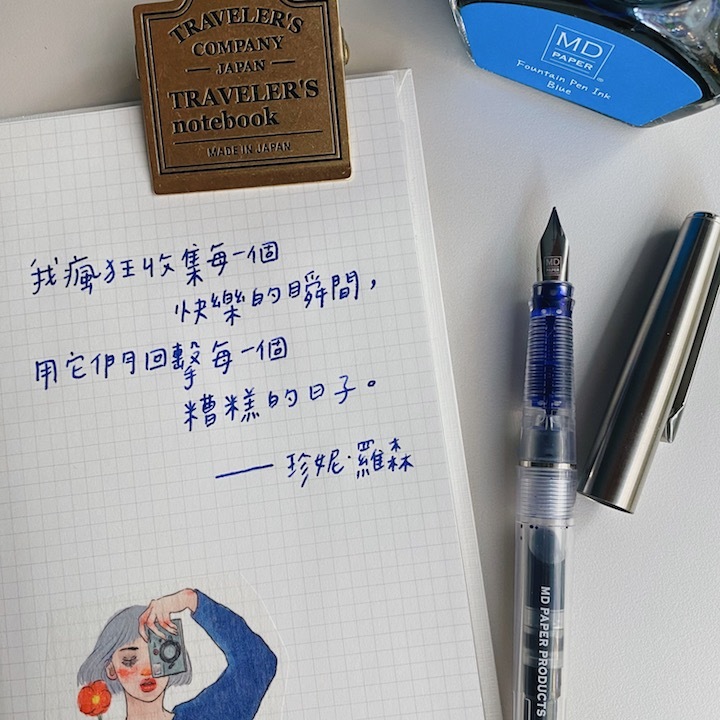 TRAVELER'S
COMPANY
JAPAN
TRAVELER'S
notebook
MADE IN JAPAN
MD
PAPER
®
Fountain Pen Ink
Blue
我瘋狂收集每一個
快樂的瞬間，
用它們回擊每一個
糟糕的日子。
—— 珍妮·羅森
MD
MD PAPER PRODUCTS